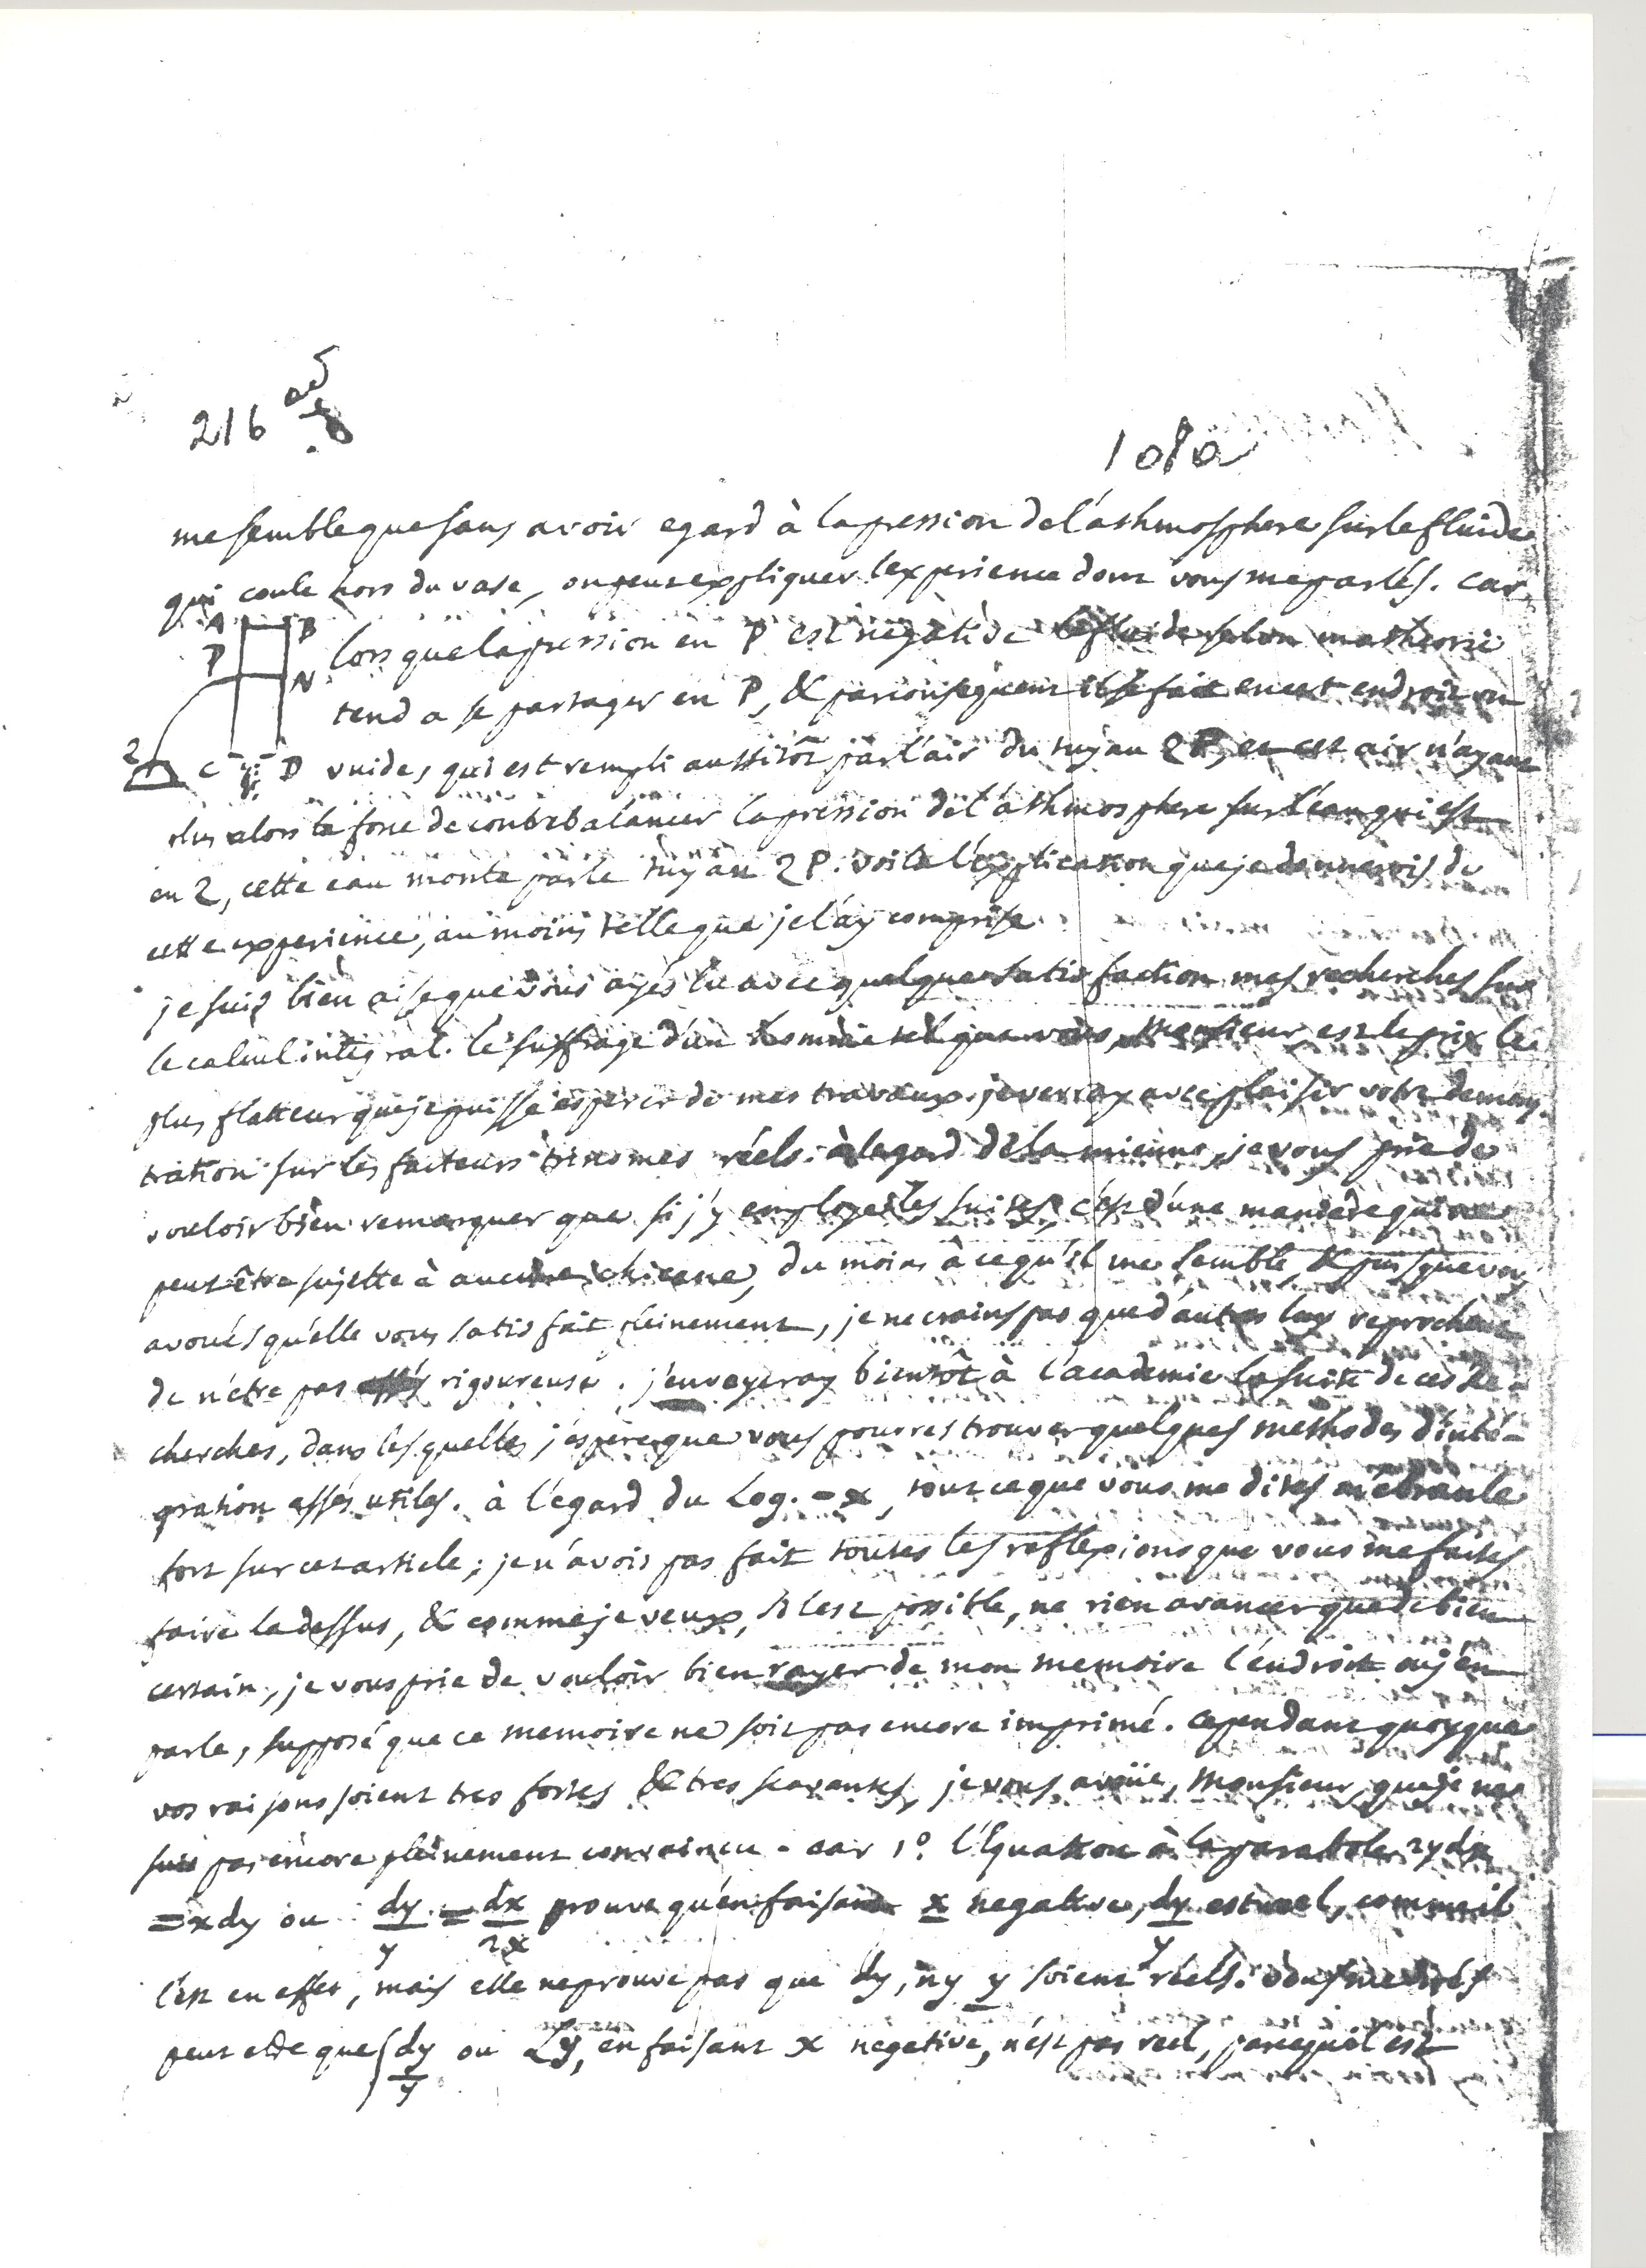 216
108a
me semble que sans avoir egard à la pression de l'athmosphere sur le fluide
qui coule hors du vase, on peut expliquer l'experience dont vous me parlés. car
A B
lorsque la pression en P est négative le fluide selon ma theorie
P N
tend a se partager en P, & par consequent il se fait en cet endroit un
2 C D vuide, qui est rempli aussitôt par l'air du tuyau 2P, et cet air n'ayant
plus alors la force de contrebalancer la pression de l'athmosphere sur l'eau qui est
en 2, cette eau monte par le tuyau 2P. voila l'explication que je donnerois de
cette experience, au moins telle que je l'ay comprise.
je suis bien aise que vous ayés lu avec quelque satisfaction mes recherches sur
le calcul intégral. le suffrage d'un homme tel que vous, Monsieur, est le prix le
plus flatteur que je puisse esperer de mes travaux. je verray avec plaisir votre demons-
tration sur les facteurs trinomes réels. à l'egard de la mienne, je vous prie de
vouloir bien remarquer que si j'y employe les suites, c'est d'une maniere qui ne
peut être sujette à aucune chicane, du moins à ce qu'il me semble, & puisque vous
avoués qu'elle vous satisfait pleinement, je ne crains pas que d'autres luy reprochent
de n'être pas rigoureuse. j'envoyeray bientôt à l'academie la suite de ces Re-
cherches, dans les quelles j'espere que vous pourres trouver quelques methodes d'inté-
gration assés utiles. à l'égard du Log. - x, tout ce que vous me dites m'ébranle
fort sur cet article; je n'avois pas fait toutes les reflexions que vous me faites
faire la dessus, & comme je veux, s'il est possible, ne rien avancer que de bien
certain, je vous prie de vouloir bien rayer de mon memoire l'endroit ou j'en
parle, supposé que ce memoire ne soit pas encore imprimé. cependant quoyque
vos raisons soient tres fortes & tres scavantes, je vous avoüe, Monsieur, que je ne
suis pas encore pleinement convaincu. car 1º l'Equation à la parabole 2ydx
= xdy ou dy/y = dx/2x prouve qu'en faisant x negative, dy/y est reel, comme il
l'est en effet, mais elle ne prouve pas que dy, ny y soient réels. vous me dirés
peut etre que ∫dy/y ou Ly, en faisant x negative, n'est pas reel, parcequ'il est